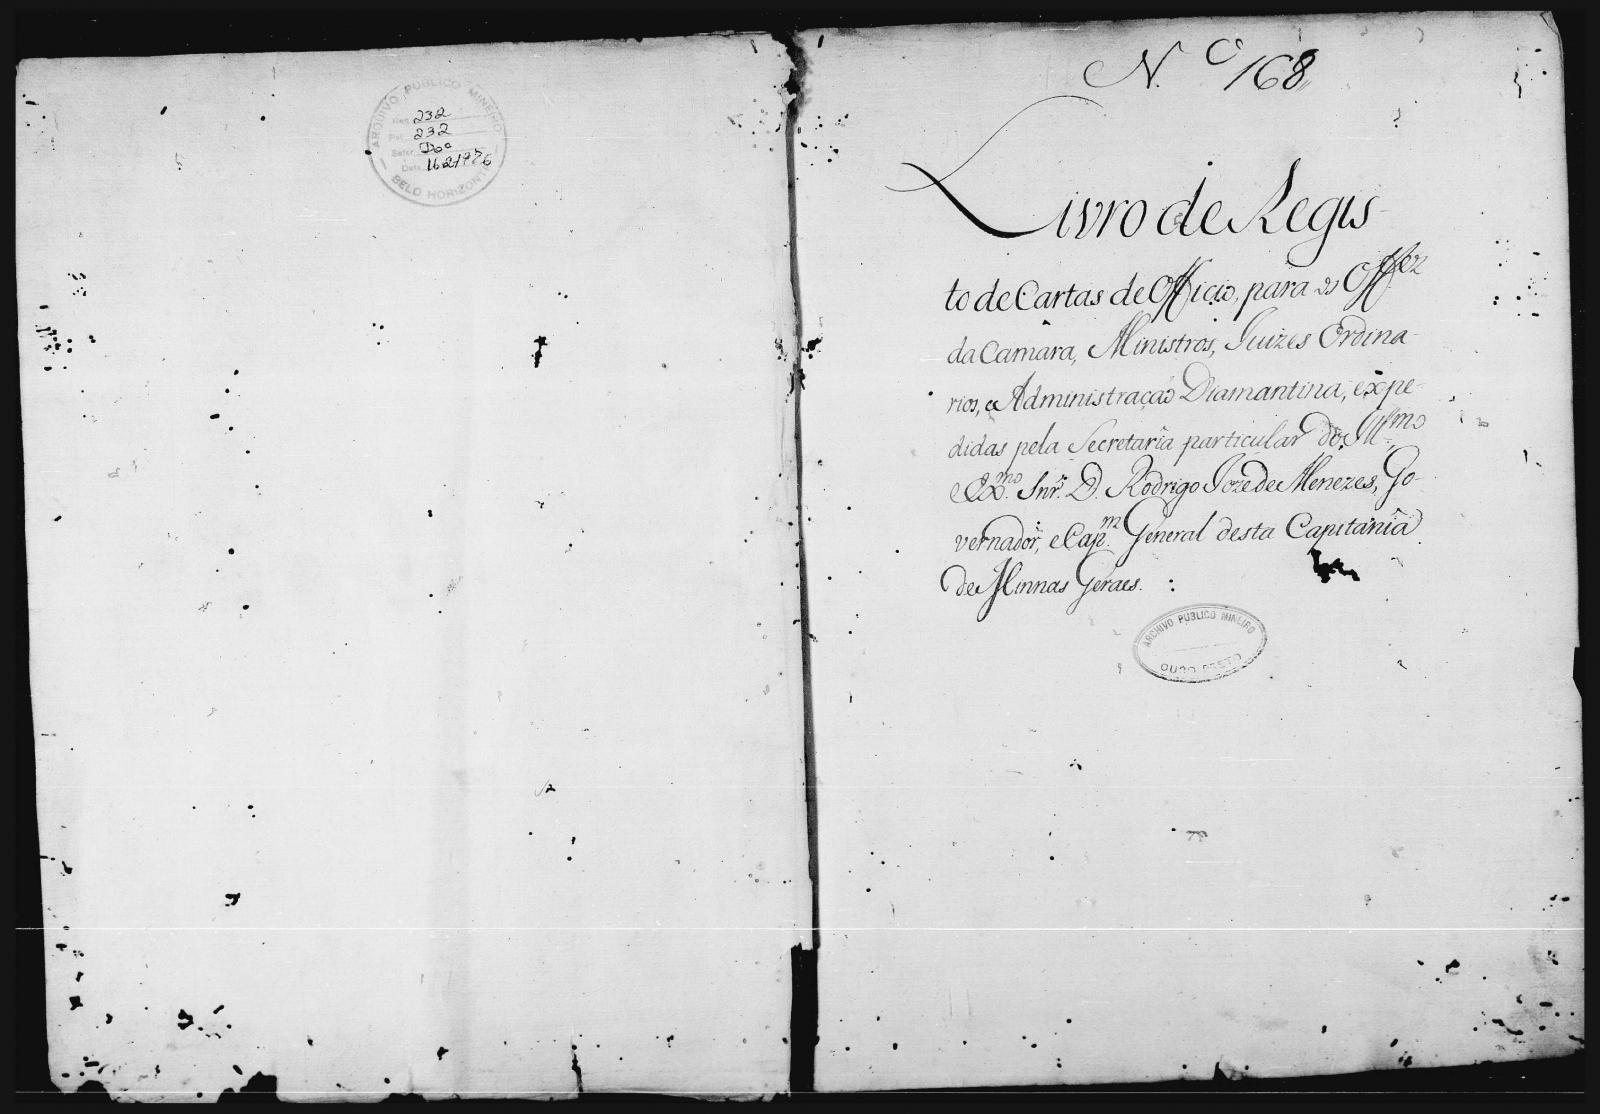 ARQUIVO PUBLICO MINEIRO
232
232
Data
BELO HORIZONTE
N.º 168
Livro de Regis-
to de Cartas de Officio, para os Offez
da Camâra, Ministros, Juizes Ordina-
rios, e Administração Diamantina, expe-
didas pela Secretarîa particular do Illmo
e Exmo. Snr. D. Rodrigo Joze de Menezes, Go-
vernador, e Capm. General desta Capitanîa
de Minnas Geraes. :
ARCHIVO PUBLICO MINEIRO
OURO PRETO